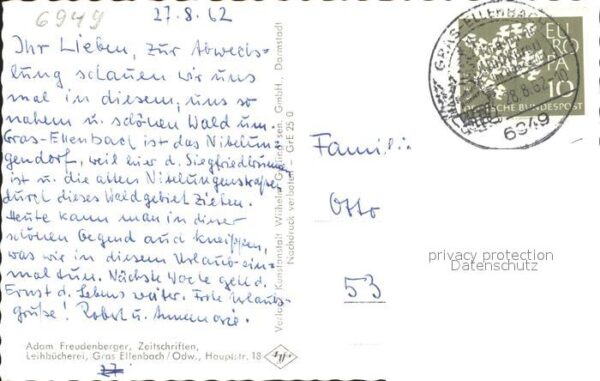 6949
27.8.62
Ihr Lieben, zur Abwechs-
lung schauen wir uns
mal in diesem, uns so
nahem u. schönen Wald um.
Gras-Ellenbach ist das Nibelun-
gendorf, weil hier d. Siegfriedbrunnen
ist u. die alten Nibelungenstraßen
durch dieses Waldgebiet ziehen.
Heute kann man in dieser
schönen Gegend auch kneippen,
was wir in diesem Urlaub ein-
mal tun. Nächste Woche geht d.
Ernst d. Lebens weiter. Frohe Urlaubs-
grüße! Robert u. Annemarie.
Adam Freudenberger, Zeitschriften,
Leihbücherei, Gras Ellenbach/Odw., Hauptstr. 18
27
Verlag: Kunstanstalt Wilhelm Gerling GmbH., Darmstadt
Nachdruck verboten - GrE 25 0
Familie
Otto
53
GRAS-ELLENBACH
28.8.62-10
6949
EUROPA
10
DEUTSCHE BUNDESPOST
privacy protection
Datenschutz